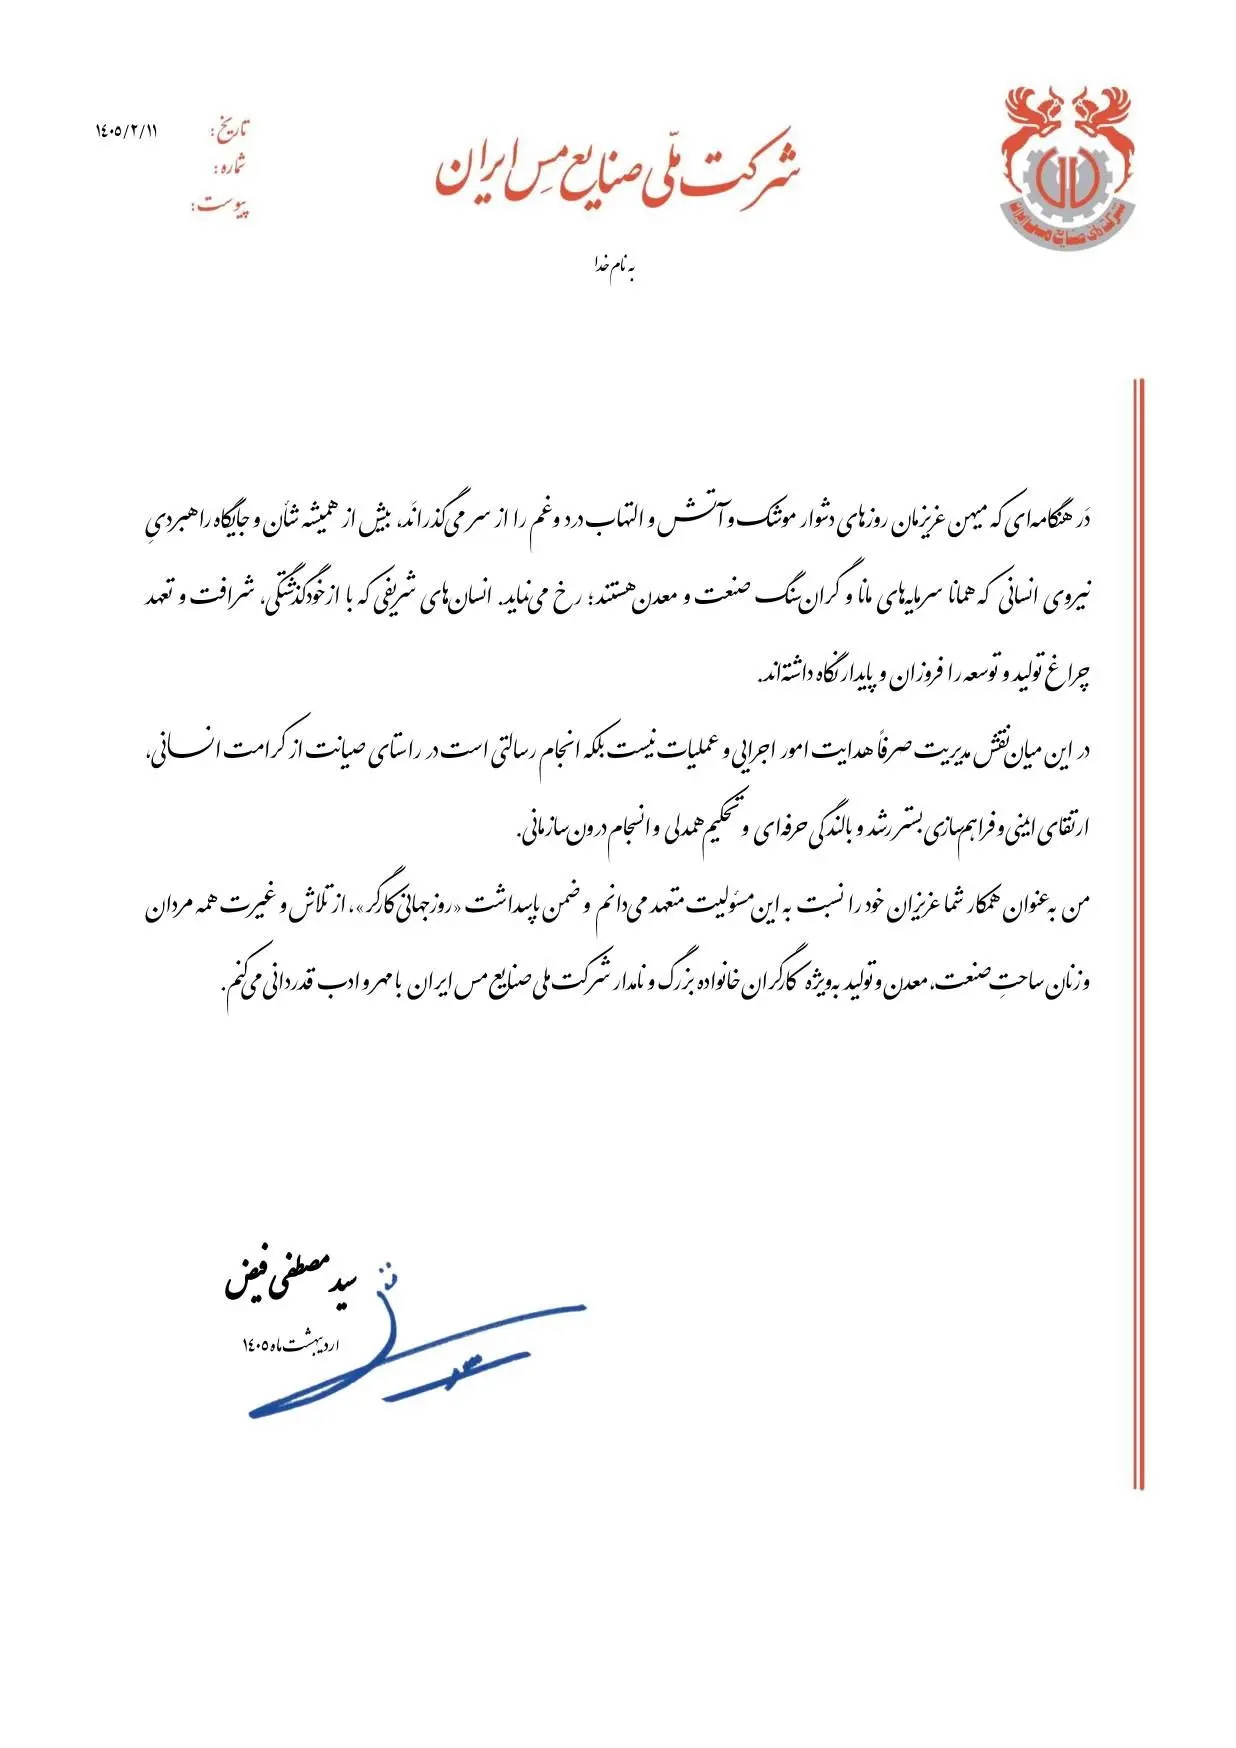 شرکت ملّی صنایع مس ایران
تاریخ: ۱۴۰۵/۲/۱۱
شماره:
پیوست:
شرکت ملی صنایع مس ایران
به نام خدا
دَر هنگامه‌ای که میهن عزیزمان روزهای دشوار موشک و آتش و التهاب درد و غم را از سر می‌گذرانَد، بیش از همیشه شأن و جایگاه راهبردیِ
نیروی انسانی که همانا سرمایه‌های مانا و گران‌سنگ صنعت و معدن هستند؛ رخ می‌نماید. انسان‌های شریفی که با ازخودگذشتگی، شرافت و تعهد
چراغ تولید و توسعه را فروزان و پایدار نگاه داشته‌اند.
در این میان نقش مدیریت صرفاً هدایت امور اجرایی و عملیات نیست بلکه انجام رسالتی است در راستای صیانت از کرامت انسانی،
ارتقای ایمنی و فراهم‌سازی بستر رشد و بالندگی حرفه‌ای و تحکیم همدلی و انسجام درون‌سازمانی.
من به‌عنوان همکار شما عزیزان خود را نسبت به این مسئولیت متعهد می‌دانم و ضمن پاسداشت «روز جهانی کارگر»، از تلاش و غیرت همه مردان
و زنان ساحتِ صنعت، معدن و تولید به‌ویژه کارگران خانواده بزرگ و نامدار شرکت ملی صنایع مس ایران با مهر و ادب قدردانی می‌کنم.
سید مصطفی فیض
اردیبهشت ماه ۱۴۰۵